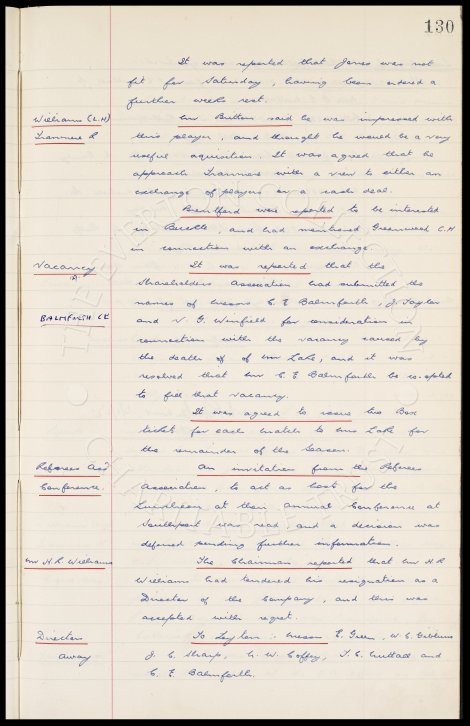 130
It was reported that Jones was not
fit for Saturday, having been ordered a
further weeks rest.
Williams (L.H)
Tranmere R
Mr Button said he was impressed with
this player, and thought he would be a very
useful aquisition. It was agreed that he
approach Tranmere with a view to either an
exchange of players or a cash deal.
Brentford were reported to be interested
in Buckle, and had mentioned Greenwood C.H
in connection with an exchange.
Vacancy
It was reported that the
Shareholders Association had submitted the
names of Messrs C E Balmforth, J. Taylor
BALMFORTH CE
and V. G. Winfield for consideration in
connection with the vacancy caused by
the death of of Mr Lake, and it was
resolved that Mr C E Balmforth be co-opted
to fill that vacancy.
It was agreed to issue two Box
tickets for each match to Mrs Lake for
the remainder of the Season.
Referees Ass
Conference
An invitation from the Referees
Association, to act as host for the
Luncheon at their Annual Conference at
Southport was read and a decision was
deferred pending further information.
Mr H.R. Williams
The Chairman reported that Mr H.R
Williams had tendered his resignation as a
Director of the Company, and this was
accepted with regret.
Directors
away
To Leyton: Messrs E. Green, W. C.
J. C. Sharp, N. W. Coffey, T. C. Nuttall and
C. E. Balmforth.